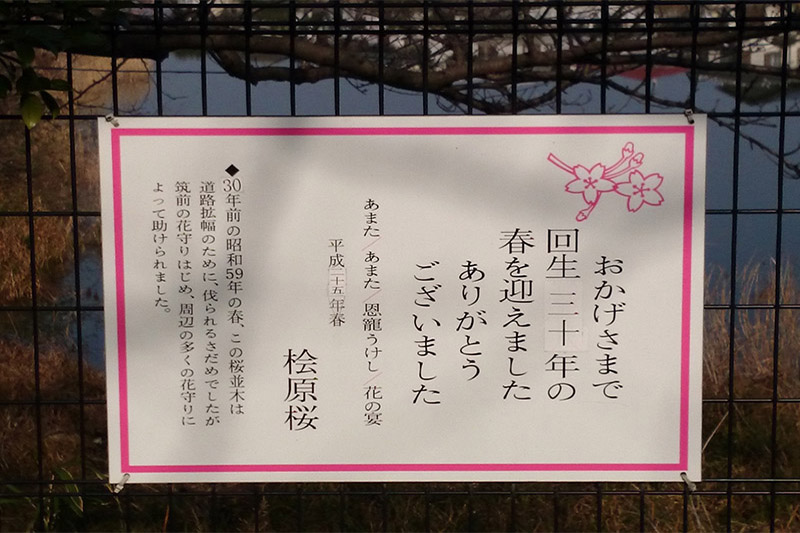 おかげさまで
回生三十年の
春を迎えました
ありがとう
ございました
あまた／あまた／恩寵うけし／花の宴
平成二十五年春
桧原桜
◆30年前の昭和59年の春、この桜並木は
道路拡幅のために、伐られるさだめでしたが
筑前の花守りはじめ、周辺の多くの花守りに
よって助けられました。